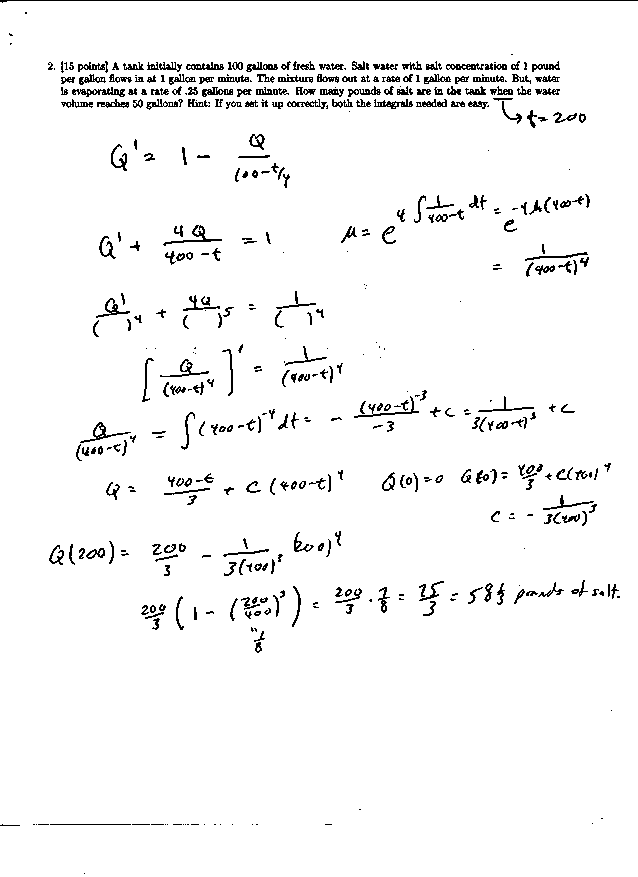 2. [15 points] A tank initially contains 100 gallons of fresh water. Salt water with salt concentration of 1 pound
per gallon flows in at 1 gallon per minute. The mixture flows out at a rate of 1 gallon per minute. But, water
is evaporating at a rate of .25 gallons per minute. How many pounds of salt are in the tank when the water
volume reaches 50 gallons? Hint: If you set it up correctly, both the integrals needed are easy.
↳ t = 200
Q' = 1 - Q/(100 - t/4)
Q' + 4Q/(400 - t) = 1
μ = e^(4∫ 1/(400-t) dt) = e^(-4 ln(400-t))
= 1/(400-t)^4
Q'/( )^4 + 4Q/( )^5 = 1/( )^4
[Q/(400-t)^4]' = 1/(400-t)^4
Q/(400-t)^4 = ∫(400-t)^-4 dt = - (400-t)^-3/-3 + c = 1/3(400-t)^3 + c
Q = (400-t)/3 + C(400-t)^4 Q(0)=0 Q(0) = 400/3 + C(400)^4
C = - 1/3(400)^3
Q(200) = 200/3 - 1/3(400)^3 (200)^4
200/3 (1 - (200/400)^3) = 200/3 · 7/8 = 75/3 = 58 1/3 pounds of salt.
" 1/8